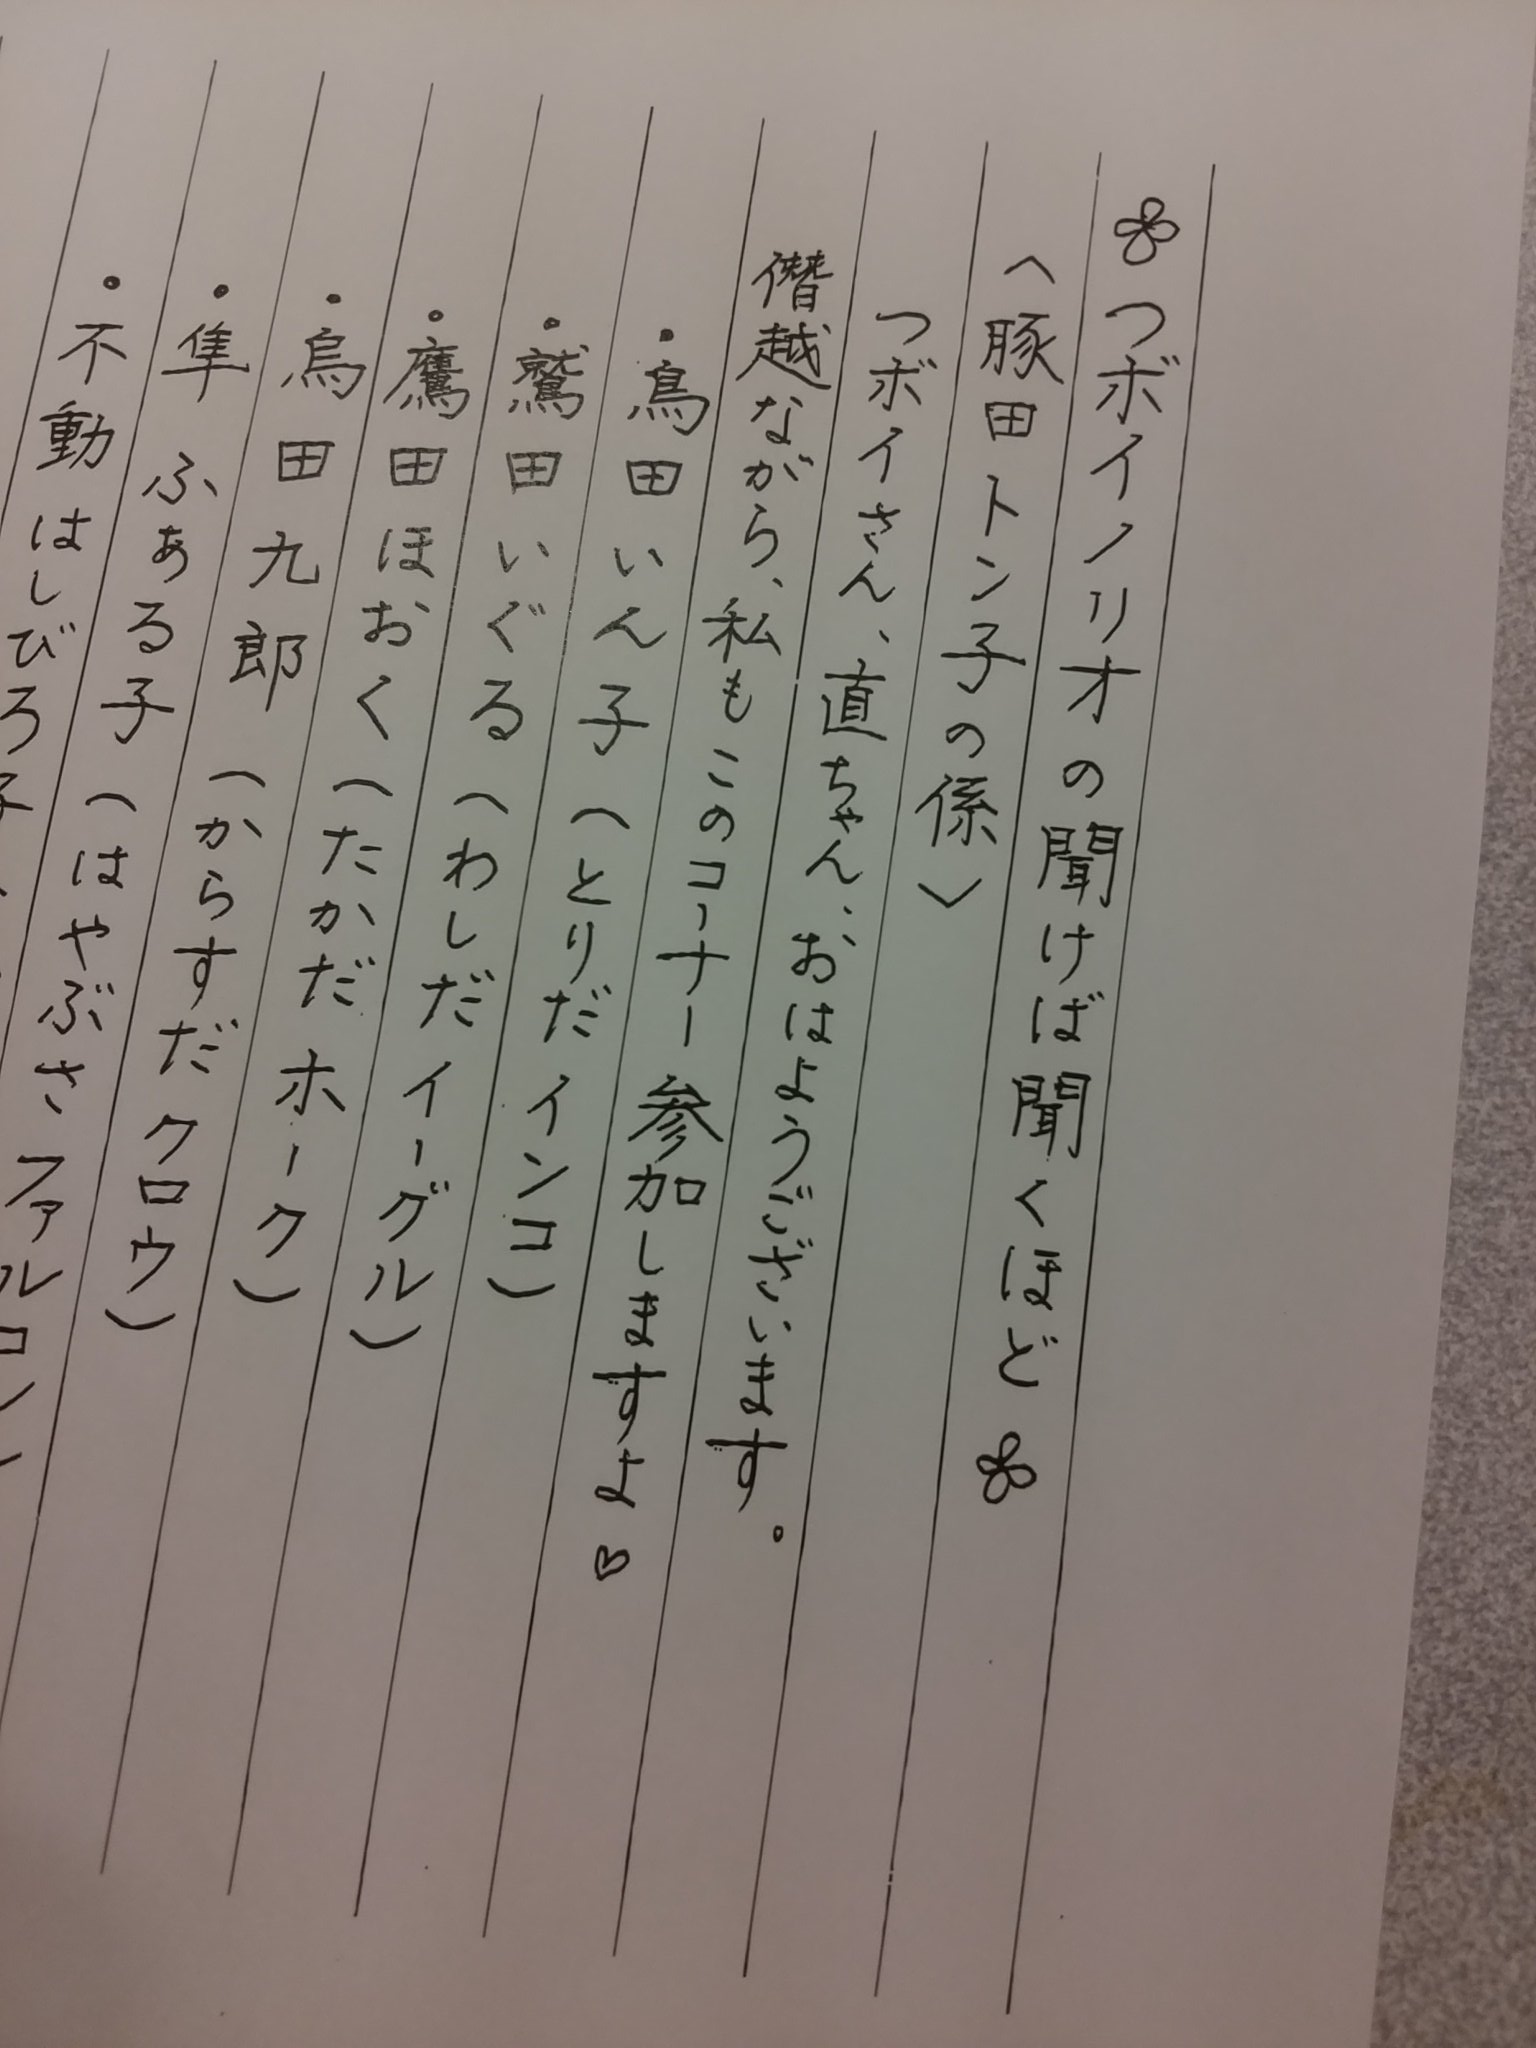 ✿ つボイノリオの聞けば聞くほど ✿
〈豚田トン子の係〉
つボイさん、直ちゃん、おはようございます。
僭越ながら、私もこのコーナー参加しますよ♡
・鳥田いん子（とりだ インコ）
・鷲田いぐる（わしだ イーグル）
・鷹田ほおく（たかだ ホーク）
・烏田九郎（からすだ クロウ）
・隼 ふぁる子（はやぶさ ファルコン）
・不動はしびろ子